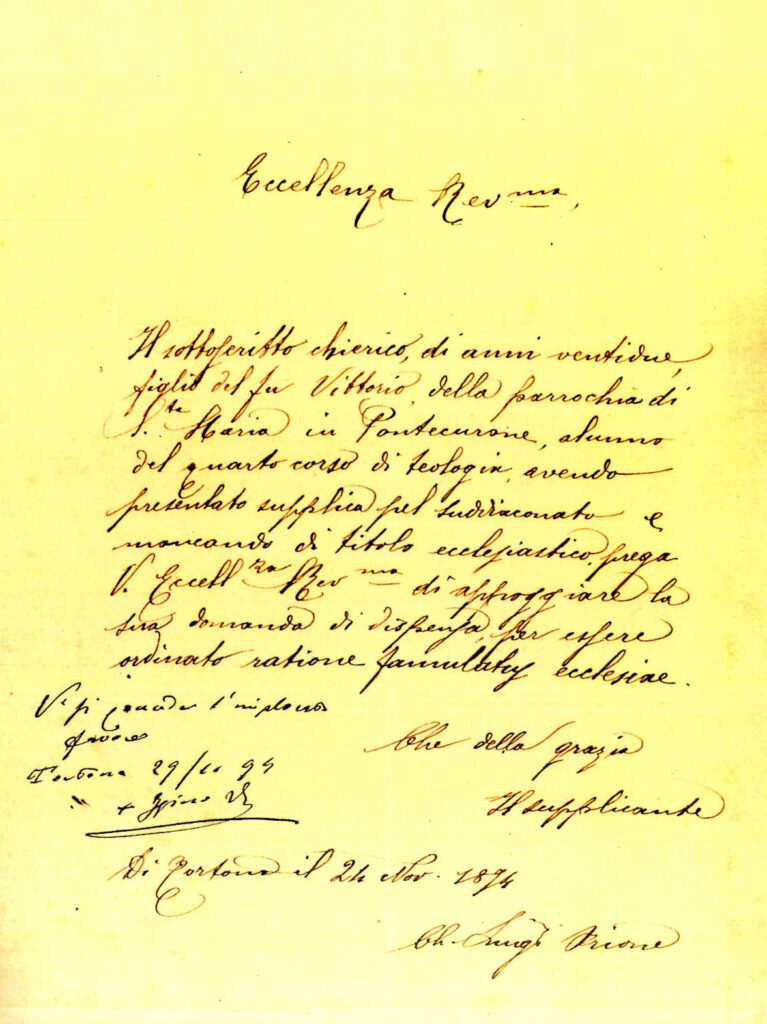 Eccellenza Rev.ma,
Il sottoscritto chierico, di anni ventidue,
figlio del fu Vittorio, della parrochia di
S.ta Maria in Pontecurone, alunno
del quarto corso di teologia, avendo
presentato supplica pel suddiaconato e
mancando di titolo ecclesiastico, prega
V. Eccell.za Rev.ma di appoggiare la
sua domanda di dispensa, per essere
ordinato ratione famulatus ecclesiae.
Che della grazia
Il supplicante
V° si concede l'implorato
favore
Tortona 29/11 94
+ Igino
Di Tortona il 24 Nov. 1894
Ch. Luigi Orione